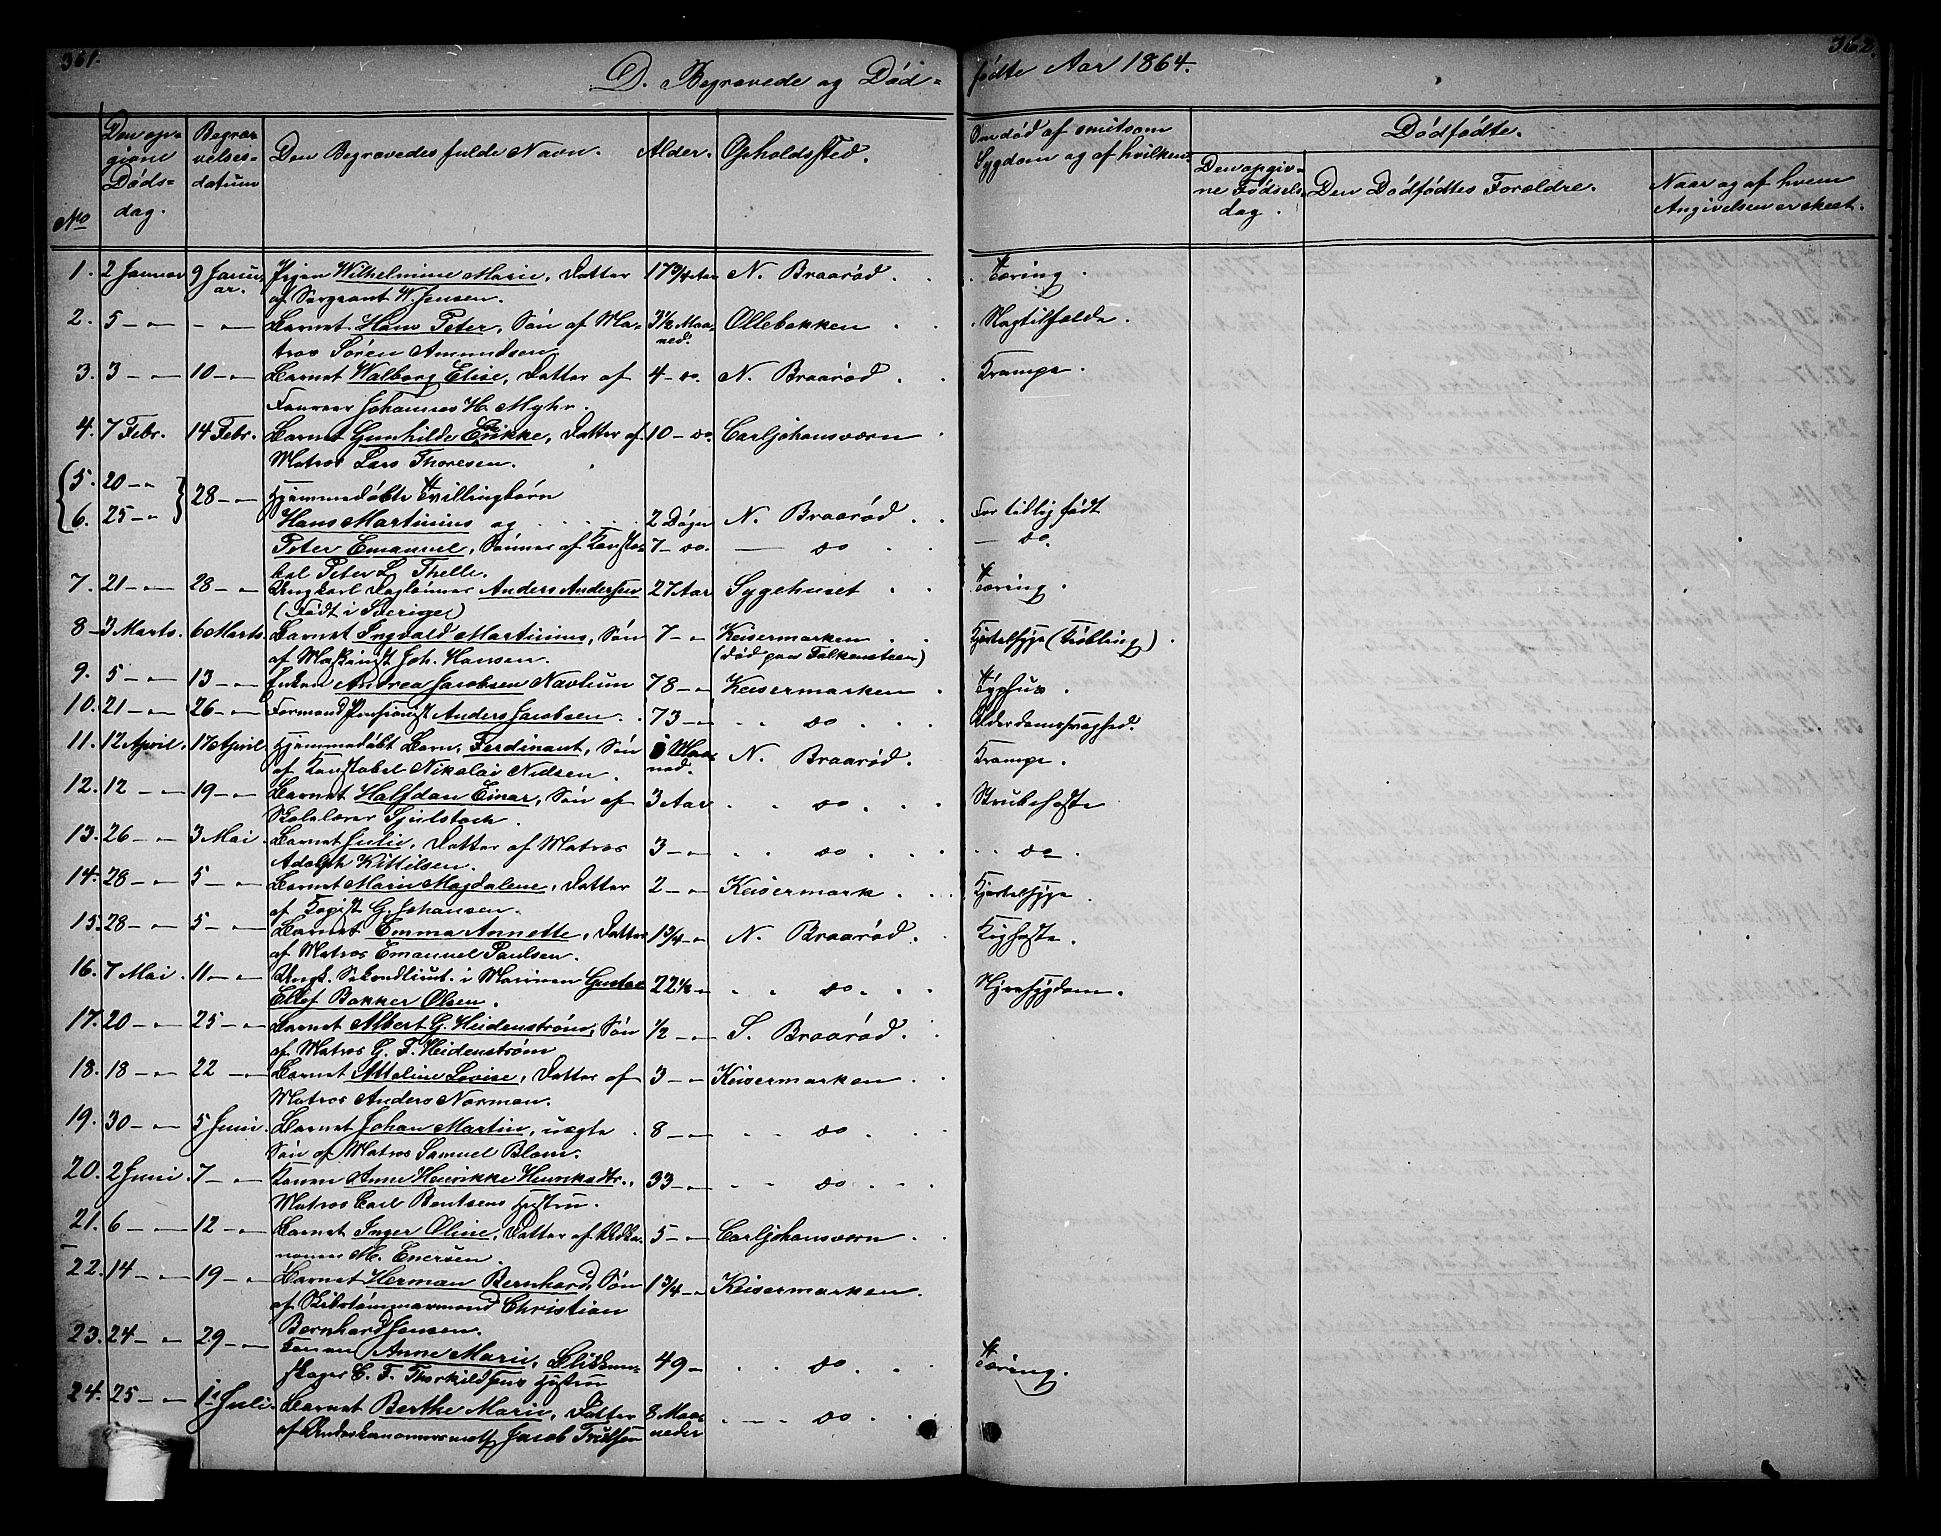 361.
362.
D. Begravede og Død-
fødte Aar 1864.
No
Den op-
givne
Døds-
dag.
Begra-
velses-
datum
Den Begravedes fulde Navn.
Alder.
Opholdssted.
Om død af smitsom
Sygdom og af hvilken.
Dødfødte.
Den opgiv-
ne Fødsels-
dag.
Den Dødfødtes Forældre.
Naar og af hvem
Angivelsen er skeet.
1. 2 Januar 9 Janu- Pigen Wilhelmine Marie, Datter 17 3/4 Aar N. Braarød. Tæring.
ar. af Sergeant W. Jensen.
2. 5 — " — — " Barnet Hans Peter, Søn af Ma- 3 1/2 Maa- Ollebakken Slagtilfælde.
tros Sören Amundsen ned.
3. 3 — " — 10 — " Barnet Walborg Elise, Datter af 4 — do. N. Braarød Krampe.
Foureer Johannes H. Myhr.
4. 7 Febr. 14 Febr. Barnet Gunhilde Erikke, Datter af 10 — do. Carljohansværn
Matros Lars Thoresen.
5. 20 — " 28 — " Hjemmedøbte Tvillingbørn
6. 25 — " Hans Martinius og 2 Døgn N. Braarød. For tidlig født
Peter Emanuel, Sønner af Konsta- 7 — do. — do — do.
bel Peter L. Thelle.
7. 21 — " 28 — " Ungkarl Daglønner Anders Andersen 27 Aar Sygehuset Tæring.
(Født i Sverige)
8 — 3 Marts. 6 Marts. Barnet Ingvald Martinius, Søn 7 — " Keisermarken Kjertelsyge (Kvobling).
af Maskinist Joh. Hansen. (død paa Falkensteen)
9. 5 — " — 13 — " Enken Andrea Jacobsen Navlum 78 — " Keisermarken Typhus.
10. 21 — " — 26 — " Formand Pensionist Anders Jacobsen. 73 — " do Alderdomssvaghed.
11. 12 April. 17 April Hjemmedøbt Barn, Ferdinant, Søn Maa- N. Braarød. Krampe.
af Konstabel Nikolai Nielsen. ned.
12. 12 — " 19 — " Barnet Halfdan Einar, Søn af 3 Aar do Strubehoste
Skolelærer Tjulstad.
13. 26 — " 3 Mai. Barnet Julie, Datter af Matros 3 — " do do.
Adolph Kittilsen.
14. 28 — " 5 — " Barnet Marie Magdalene, Datter 2 — " Keisermark Kjertelsyge.
af Kopist G. Johansen.
15. 28 — " 5 — " Barnet Emma Annette, Datter 1 3/4 — " N. Braarød. Kighoste.
af Matros Emanuel Paulsen.
16. 7 Mai. 11 — " Ungk. Sekondlieut. i Marinen Gustav 22 1/2 — " do
Ellef Bakker Olsen.
17. 20 — " 25 — " Barnet Albert G. Heidenstrøm, Søn 1/2 — " S. Braarød.
af Matros G. F. Heidenstrøm
18. 18 — " 22 — " Barnet Attoline Lovise, Datter af 3 — " Keisermarken
Matros Anders Norman.
19. 30 — " 5 Juni. Barnet Johan Martin, uægte 8 — " do
Søn af Matros Samuel Blom.
20. 2 Juni. 7 — " Konen Anne Henrikke Henriksdtr., 33 — " do
Matros Carl Bentsens Hustru.
21. 6 — " 12 — " Barnet Inger Oline, Datter af Udka- 5 — " Carljohansværn
noneer M. Enersen.
22. 14 — " 19 — " Barnet Herman Bernhard, Søn 1 3/4 — " Keisermarken.
af Skibstømmermand Christian
Bernhard Jensen.
23. 24 — " 29 — " Konen Anne Marie, Blikken- 49 — do Tæring.
slager C. F. Thorkildsens Hustru
24. 25 — " 1s Juli. Barnet Berthe Marie, Datter 8 Maa- do
af Underkanoneer Jacob neder